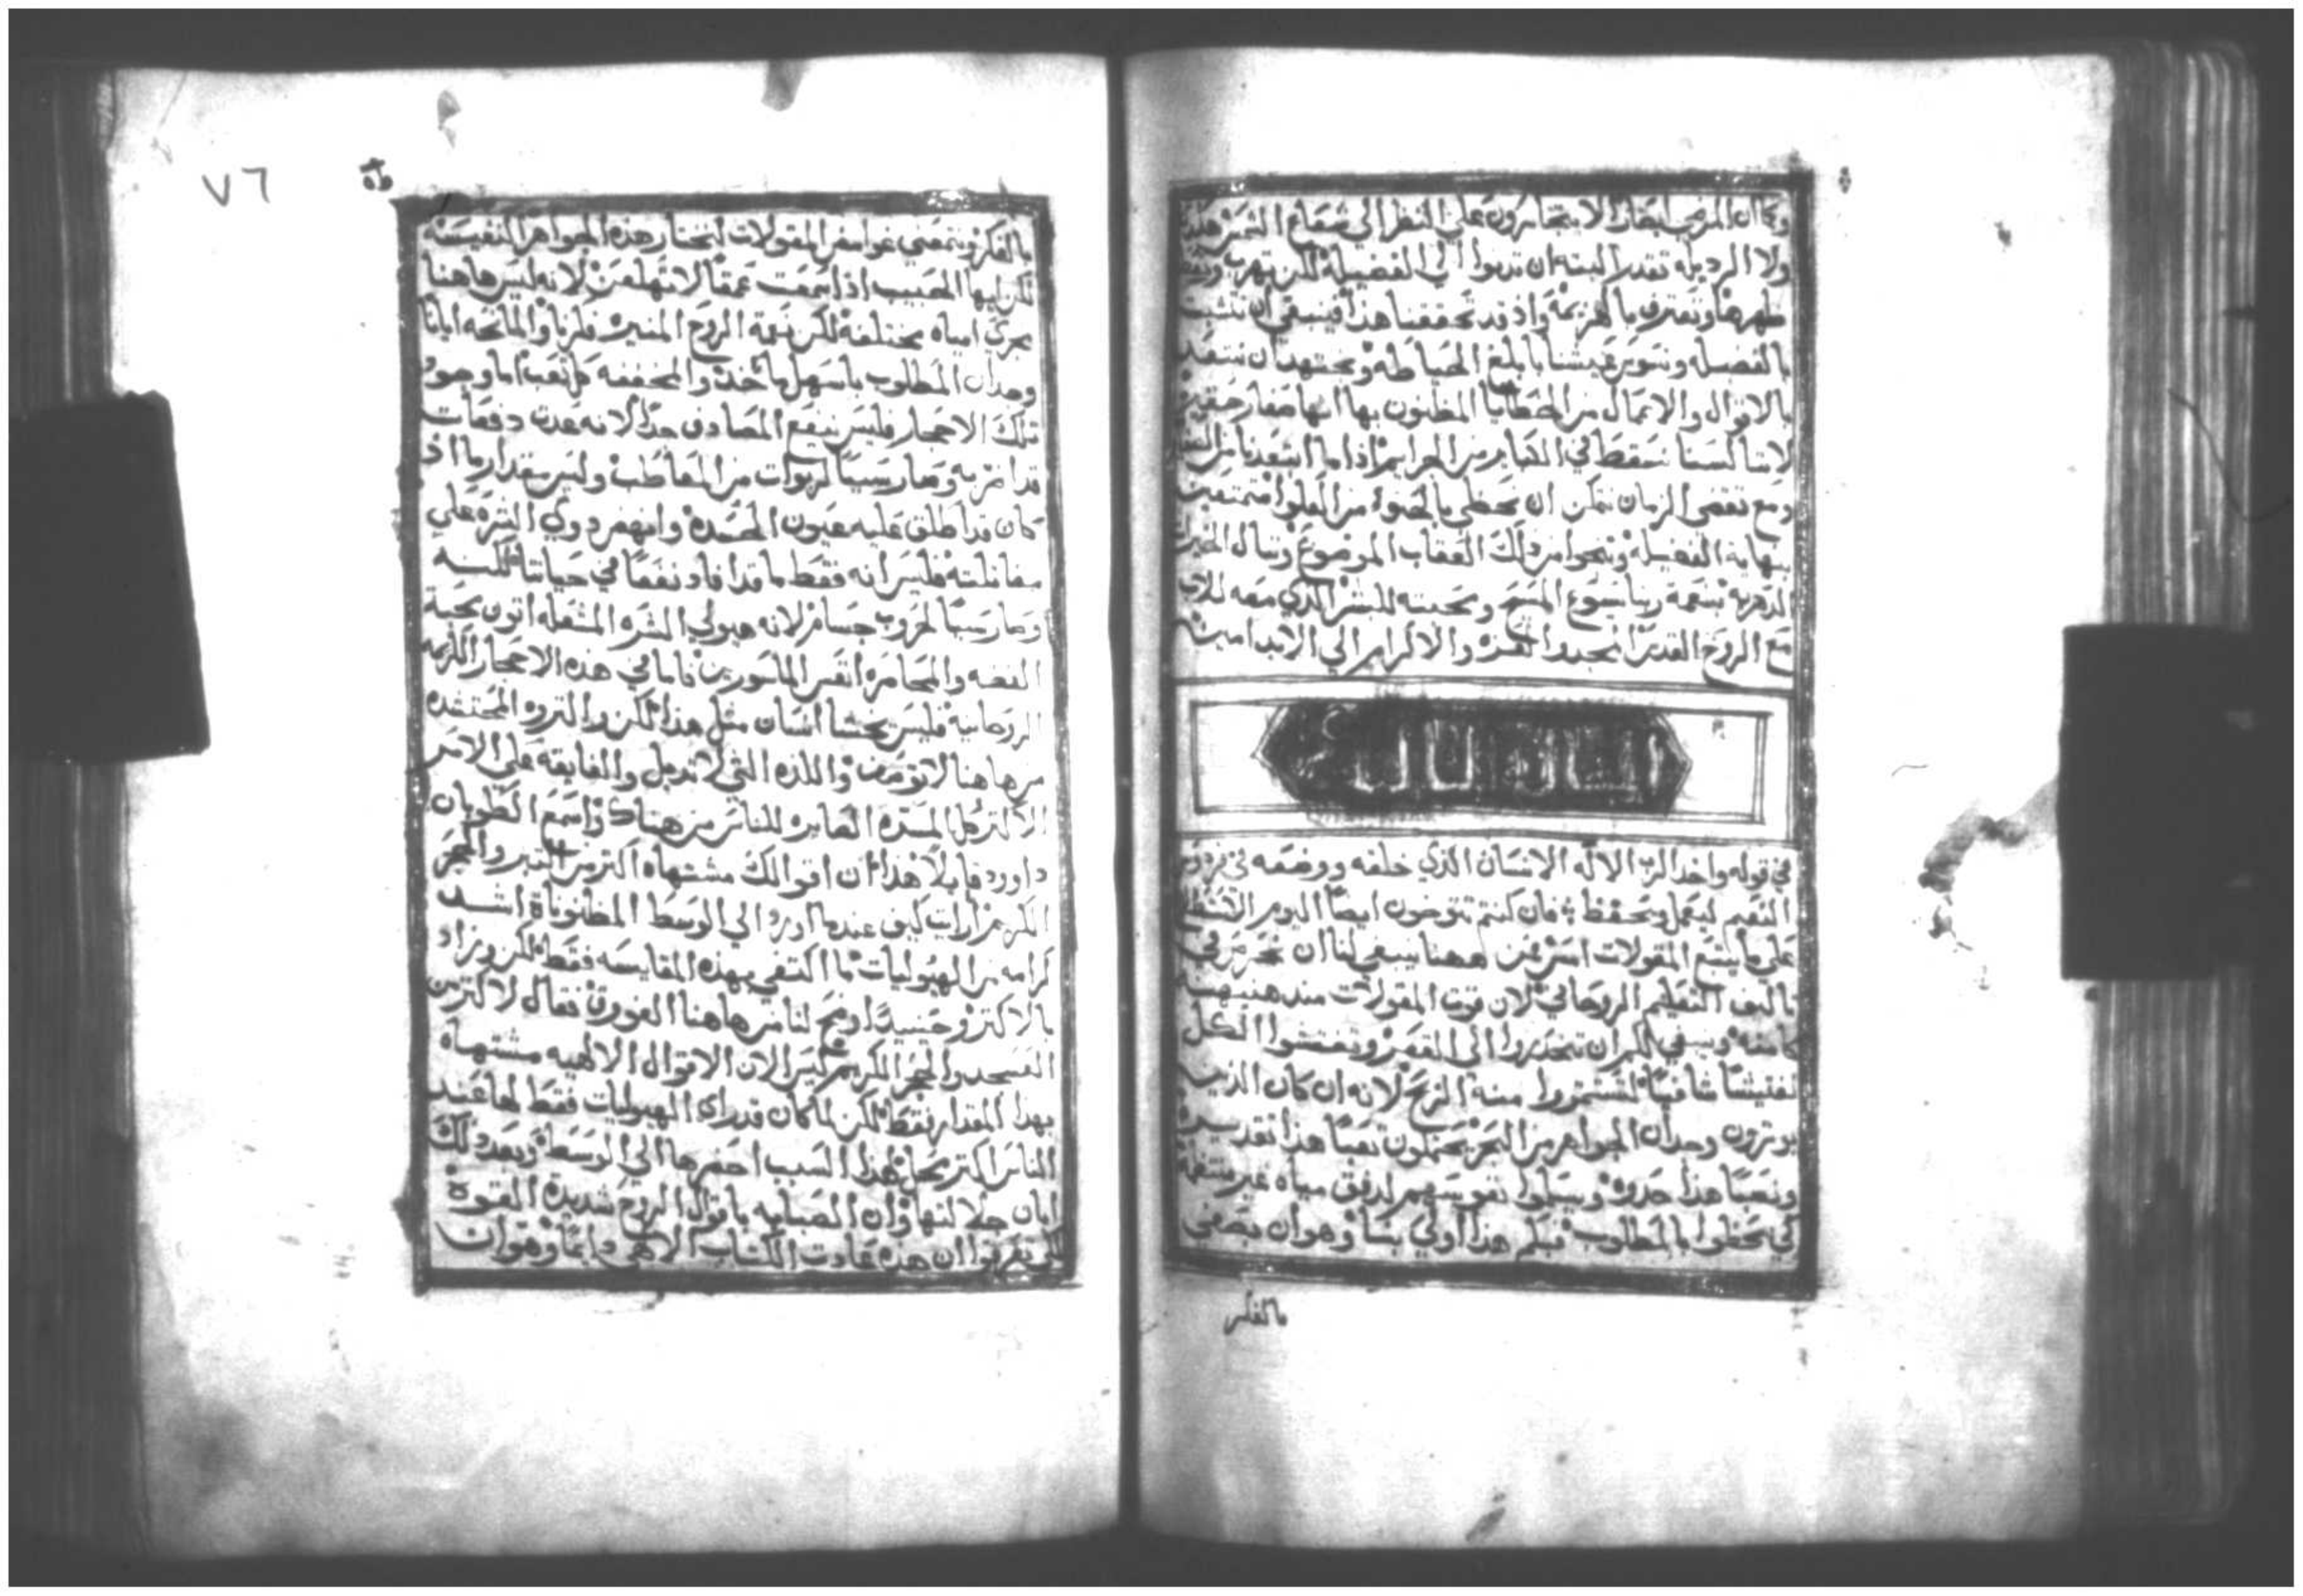 وكما ان المرضي ابصارا لا يتجاسرون علي النظر الي شعاع الشمس هكذا
ولا الرديله تقدر البته ان تدنوا الي الفضيلة لكن تهرب وتعط
ظهرها وتعترف بالهزيمة واذ قد تحققنا هذا فينبغي ان نتشبت
بالفضيله ونسوس عيشنا بابلغ الحياطه ونجتهد ان نبتعد
بالاقوال والاعمال من الخطايا المظنون بها انها صغار حقيره
لاننا لسنا نسقط في الكباير من الجرايم اذا ما ابتعدنا من
ومع تقضي الزمان نتمكن ان نحظي بالحنوه من العلوا متمتعين
بنهاية الفضيله وننجوا من ذلك العقاب الموضوع وننال الخيرات
الدهرية بنعمة ربنا يسوع المسيح ومحبته للبشر الذي معه للاب
مع الروح القدس المجد والعز والاكرام الي الابد امين
في قوله واخد الرب الاله الانسان الذي خلقه ووضعه في فردوس
النعيم ليعمل ويحفظ فان كنتم تتوخون ايضا اليوم
علي ما يتبع المقولات امس فمن ههنا ينبغي لنا ان
تاليف التعليم الروحاني لان قوت المقولات
كامنه وينبغي لكم ان تنحدروا الي القعر وتفتشوا الكل
تفتيشا شافيا لتستمروا منه الربح لانه ان كان الذين
يوترون وجدان الجواهر من البحر يحتملون تعبا هذا تقديره
ونصبا هذا حدوه ويسلموا نفوسهم لدفق مياه غير
كي يحظوا بالمطلوب فبكم هذا اولي بنا وهو ان نصغي
بالفكر
٧٦
بالفكر ونتمعني غوامض المقولات لنختار هذه الجواهر النفيسه
لكن ايها الحبيب اذا سمعت عمقا لا تهلعن لانه ليس هاهنا
مجري امياه مختلفة لكن نعمة الروح المنيره فكرنا والمانحه ايانا
وجدان المطلوب باسهل ماخذ والمخففه كل تعب اما وجود
تلك الاحجار فليس ينفع المصادف جدا لانه عدت دفعات
قد اضر به وصار سببا لربوات من المعاطب وليس بمقدار ما اذ
كان قد اطلق عليه عيون الحسده وانهض ذوي الشره علي
مقاتلته فليس انه فقط ما قد افاد نفعا في حياتنا لكنه
وصار سببا لحروب جسام لانه هيولي الشره المشعله اتون محبة
الفضه والمحاصره انفس الماسورين فاما في هذه الاحجار الكريمه
الروحانيه فليس يخشا انسان مثل هذا لكن والتروه المحتشده
من هاهنا لا توصف واللذه التي لا تدبل والفايقة علي الامر
الاكثر كل المسره الصايره للناس من هناك واسمع الطوبان
داوود قايلا هذا ان اقوالك مشتهاه اكثر من التبر والحجر
المكرم ارايت كيف عندما اورد الي الوسط المظنوناة اشد
كرامه من الهيوليات ما اكتفي بهذه المقايسه فقط لكن وزاد
بالاكثر وحينيدا وضح لنا من هاهنا الفورق فقال لاكثر من
العسجد والحجر المكرم كثيرا لان الاقوال الالهيه مشتهاه
بهذا المقدار فقط لكن لما كان قد راي الهيوليات فقط لها عند
الناس اكثر محل لهذا السبب احضرها الي الوسط وبعد ذلك
ابان جلالتها وان الصبابه باقوال الروح شديدة القوة
لكي تعرفوا ان هذه عادت الكتاب الالهي دايما وهو ان